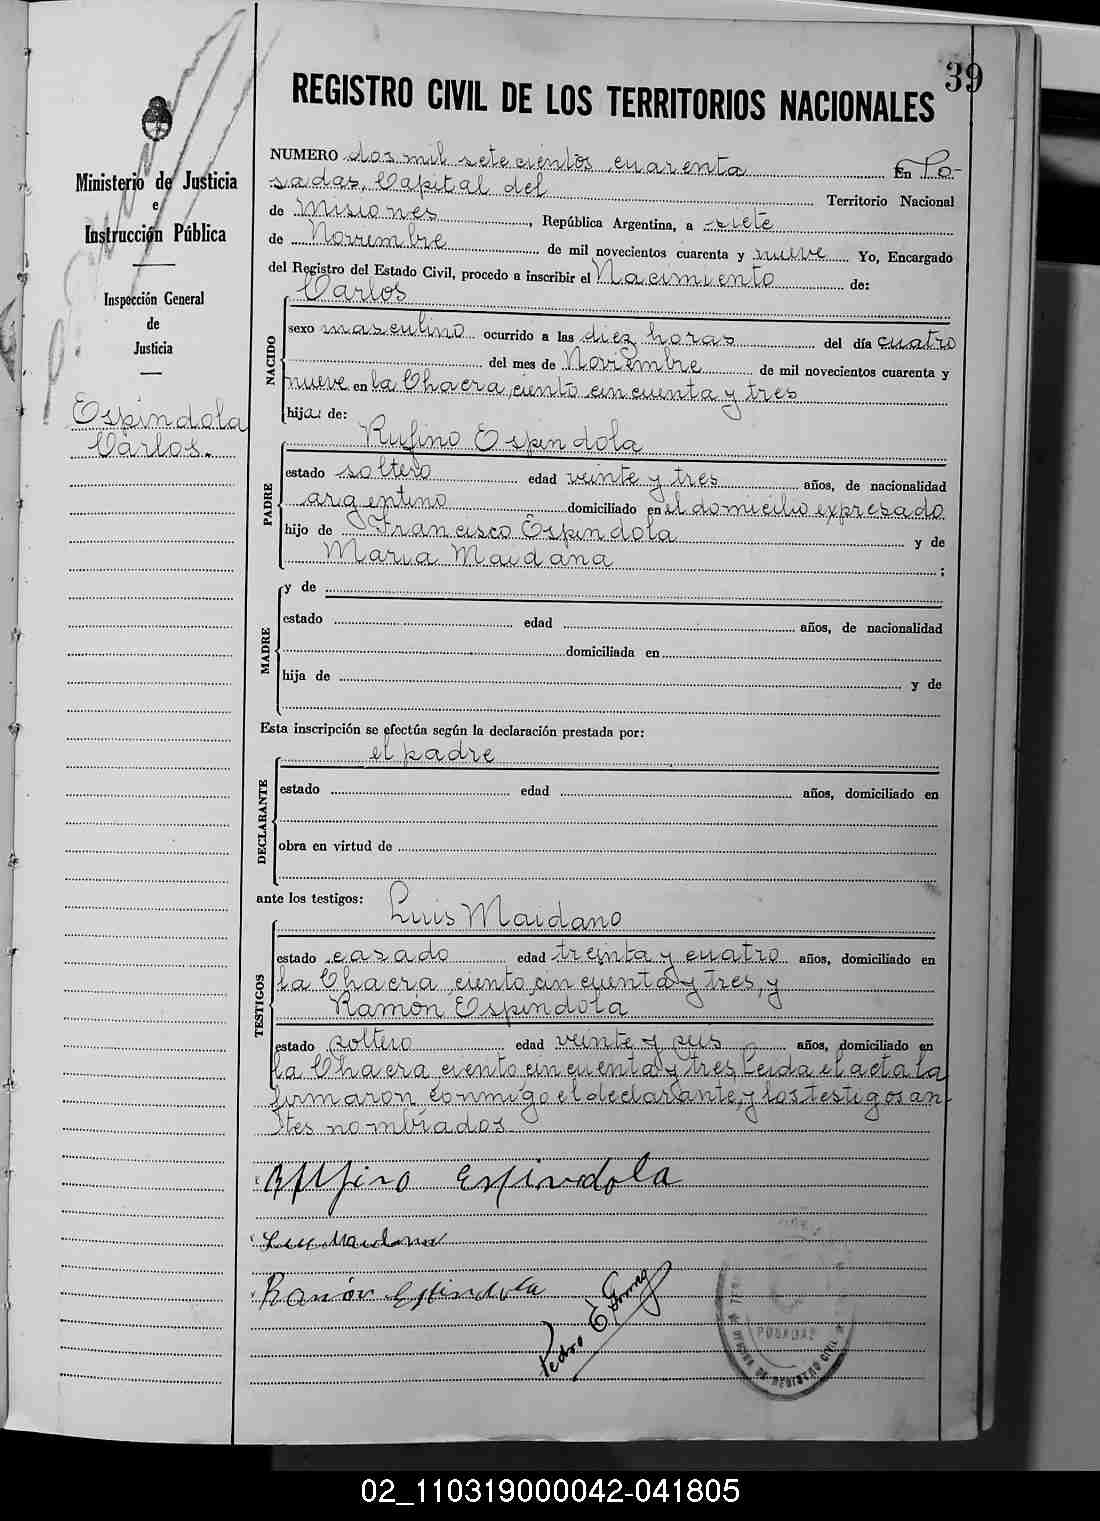 39
REGISTRO CIVIL DE LOS TERRITORIOS NACIONALES
Ministerio de Justicia
e
Instrucción Pública
Inspección General
de
Justicia
Espindola
Carlos.
NUMERO dos mil setecientos cuarenta En Po-
sadas, Capital del Territorio Nacional
de Misiones, República Argentina, a siete
de Noviembre de mil novecientos cuarenta y nueve Yo, Encargado
del Registro del Estado Civil, procedo a inscribir el Nacimiento de:
Carlos
NACIDO
sexo masculino ocurrido a las diez horas del día cuatro
del mes de Noviembre de mil novecientos cuarenta y
nueve en la Chacra ciento cincuenta y tres
hijo de:
Rufino Espindola
PADRE
estado soltero edad veinte y tres años, de nacionalidad
argentino domiciliado en el domicilio expresado
hijo de Francisco Espindola y de
Maria Maidana ;
MADRE
y de
estado edad años, de nacionalidad
domiciliada en
hija de y de
Esta inscripción se efectúa según la declaración prestada por:
el padre
DECLARANTE
estado edad años, domiciliado en
obra en virtud de
ante los testigos: Luis Maidano
TESTIGOS
estado casado edad treinta y cuatro años, domiciliado en
la Chacra ciento cincuenta y tres, y
Ramón Espindola
estado soltero edad veinte y seis años, domiciliado en
la Chacra ciento cincuenta y tres, Leida el acta la
firmaron conmigo el declarante, y los testigos an-
tes nombrados
Rufino Espindola
Luis Maidana
Ramón Espindola
Pedro E
POSADAS
REGISTRO CIVIL
02_110319000042-041805